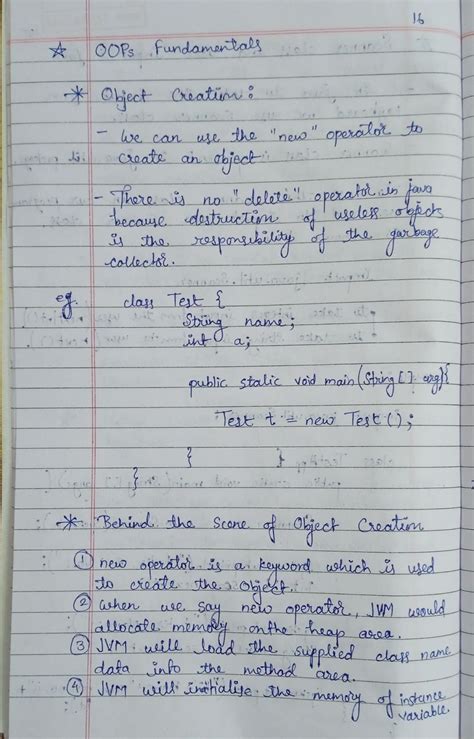 16
☆ OOPs Fundamentals
* Object Creation:
- We can use the "new" operator to
create an object
- There is no "delete" operator in java
because destruction of useless object
is the responsibility of the garbage
collector.
eg. class Test {
String name;
int a;
public static void main(String[] arg){
Test t = new Test();
}
}
* Behind the Scene of Object Creation
① new operator is a keyword which is used
to create the Object.
② When we say new operator, JVM would
allocate memory on the heap area.
③ JVM will load the supplied class name
data into the method area.
④ JVM will initialise the memory of instance
variable.